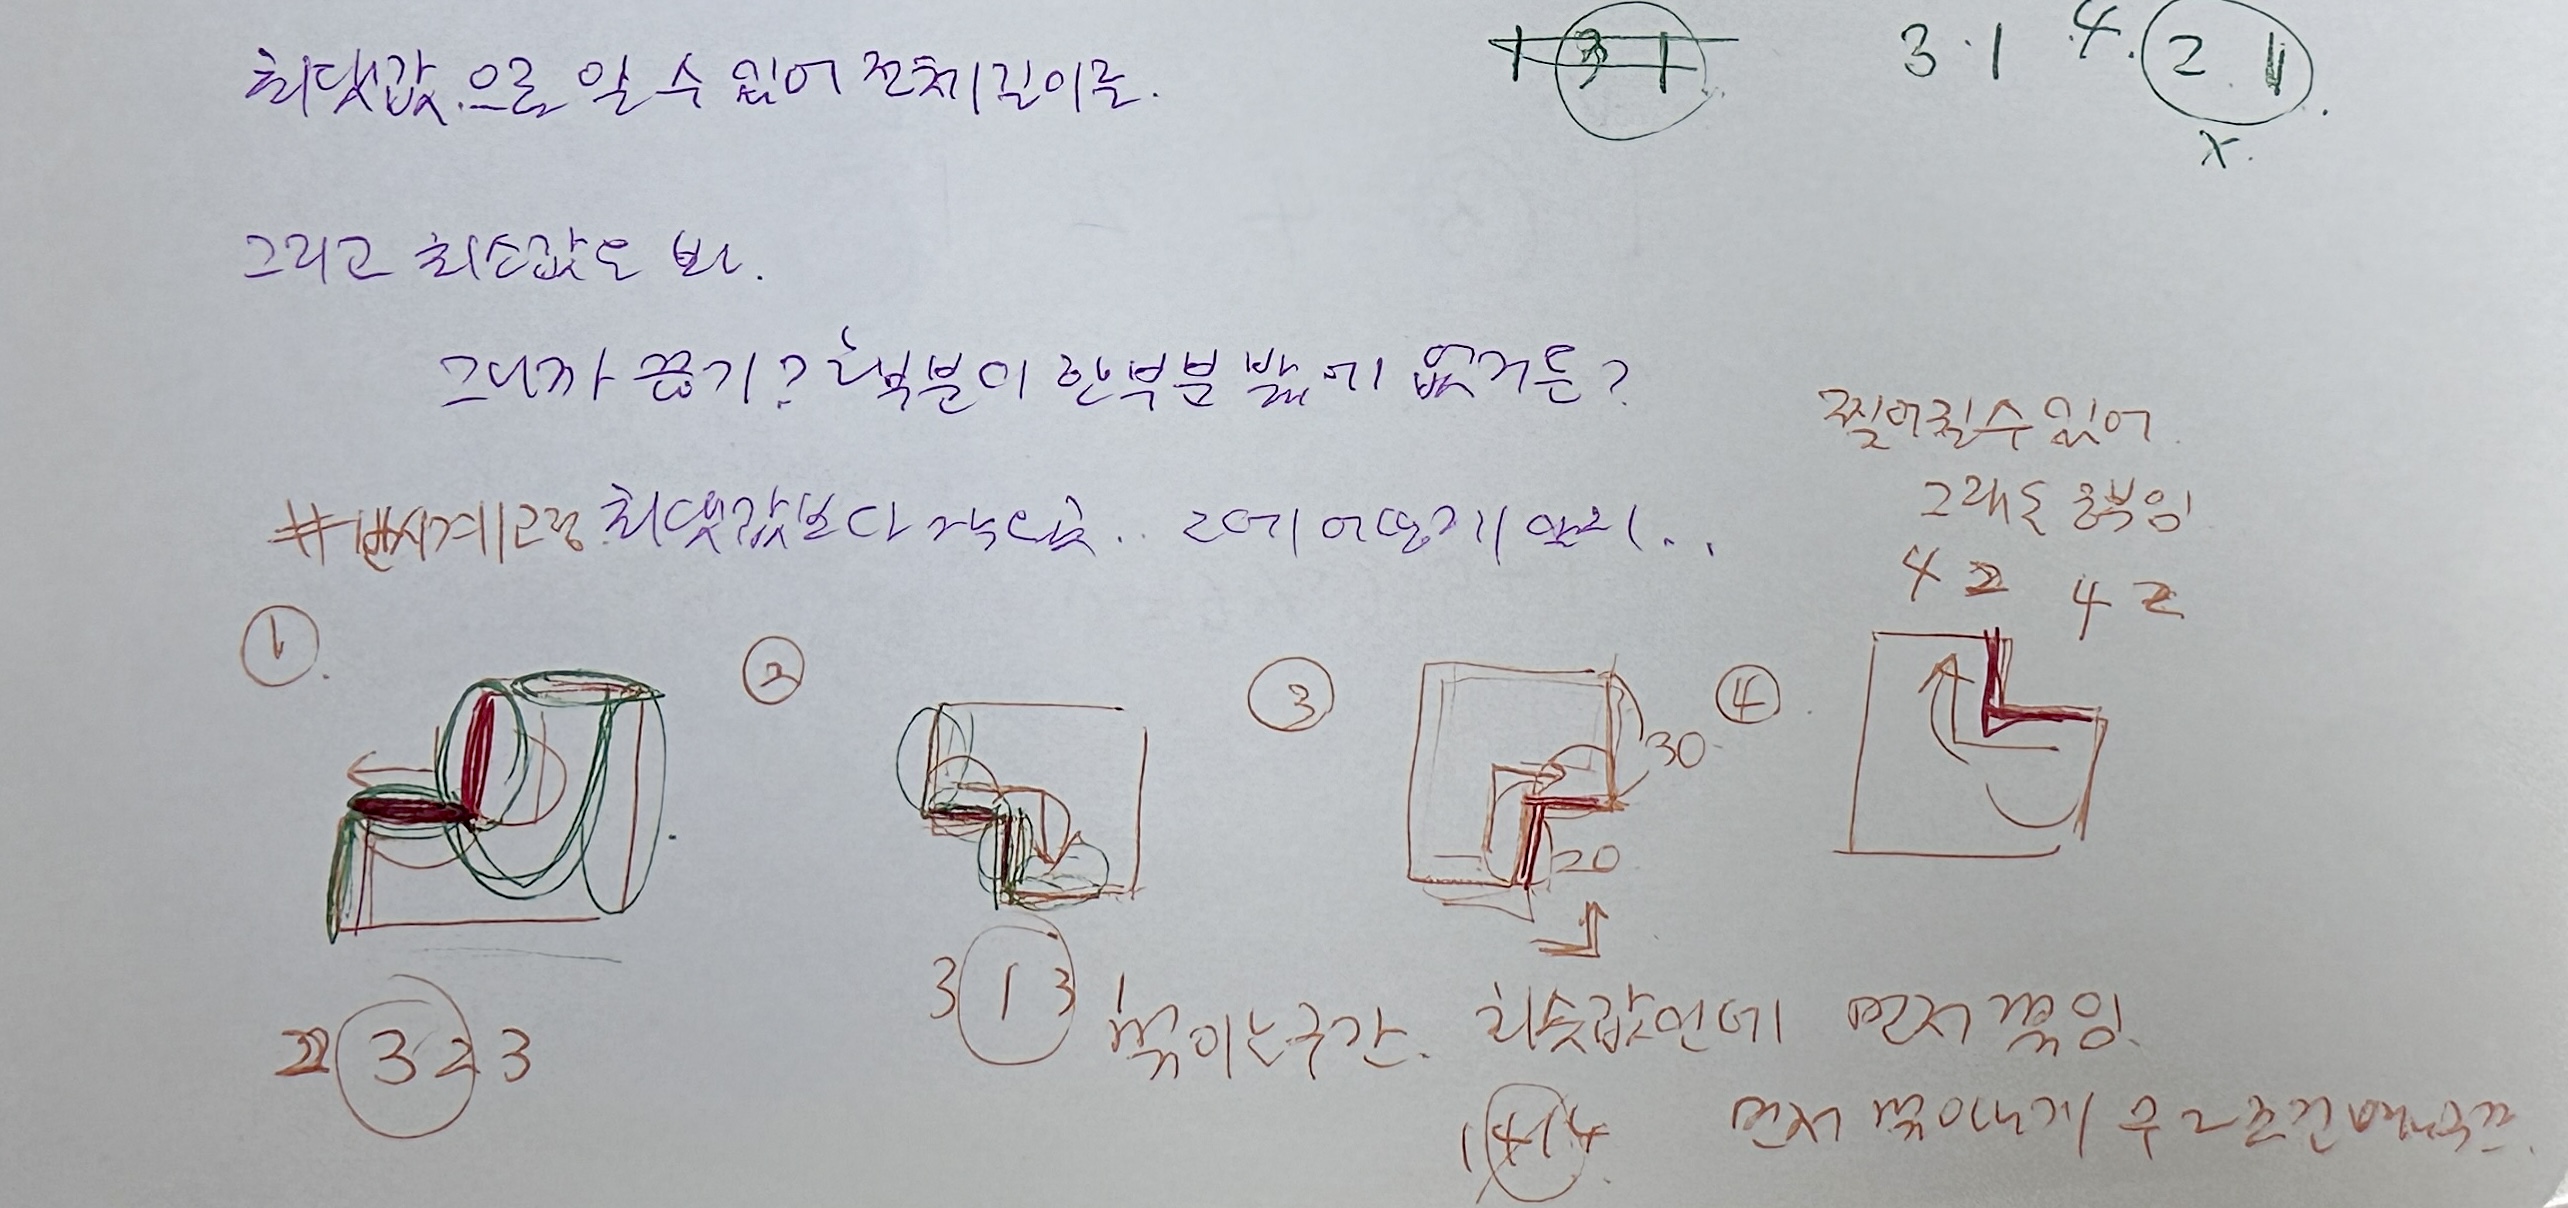 최댓값으로 알 수 있어 전체 길이를.
1 3 1 3·1 4. 2 1.
x.
그리고 최솟값도 봐.
그니까 끊기? 는 부분이 한부분 밖에 없거든?
찢어질수 있어
그래도 중복임
4 2 4 2
#반시계고정 최댓값보다 작은.. 고에 어떻게 알지..
① ② ③ ④
30
20
2 3 2 3
3 1 3 1
꺾이는구간. 최솟값인데 먼저 꺾임
1 4 1 4
먼저 꺾이는게 무조건